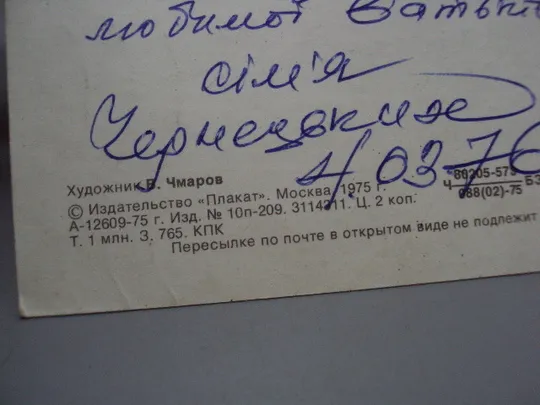 любимої
сім'я
Чернецьких
4/03-76
Художник В. Чмаров
© Издательство «Плакат». Москва, 1975 г.
А-12609-75 г. Изд. № 10п-209. 3114211. Ц. 2 коп.
Т. 1 млн. З. 765. КПК
Ч 80205-573 БЗ
088(02)-75
Пересылке по почте в открытом виде не подлежит